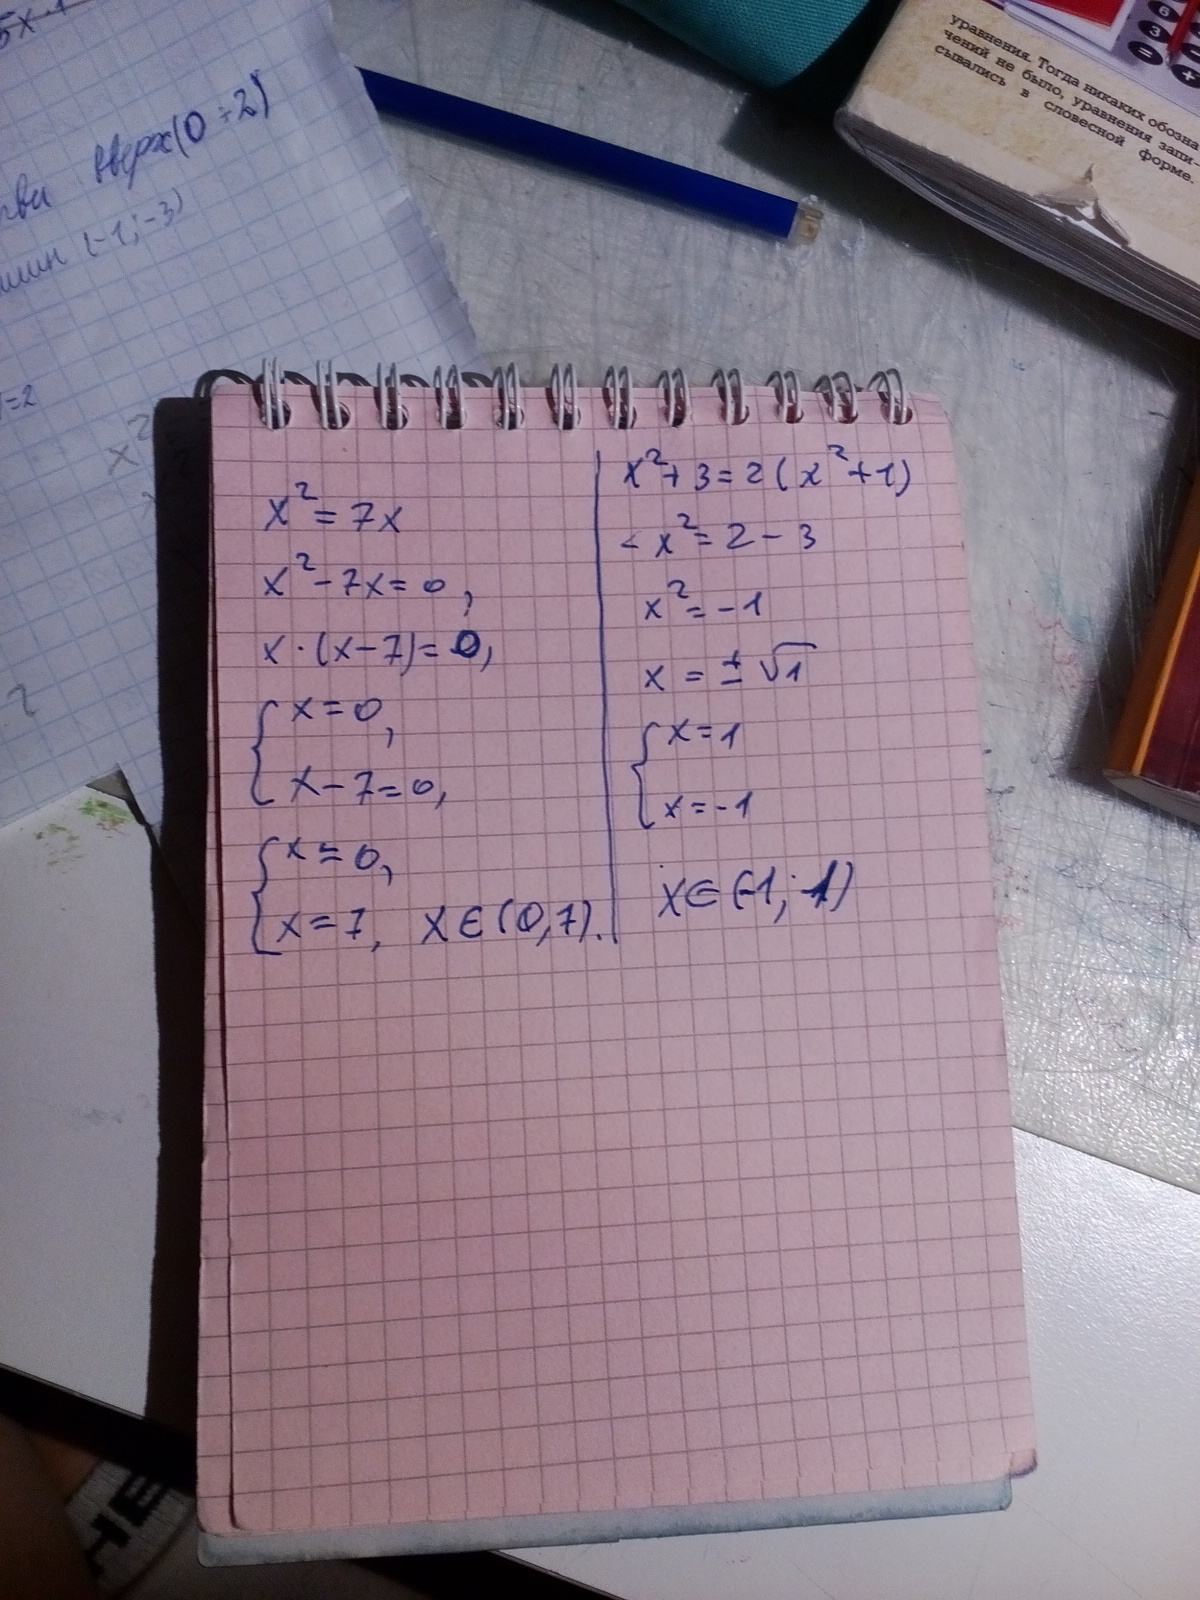 5x
вверх(0÷2)
(-1;-3)
=2
x²
2
уравнения. Тогда никаких обозна-
чений не было, уравнения запи-
сывались в словесной форме.
6
3
=
+
x² = 7x
x² - 7x = 0,
x · (x - 7) = 0,
{ x = 0,
x - 7 = 0,
{ x = 0,
x = 7, x ∈ (0,7).
x² + 3 = 2(x² + 1)
- x² = 2 - 3
x² = -1
x = ± √1
{ x = 1
x = -1
x ∈ (-1; 1)